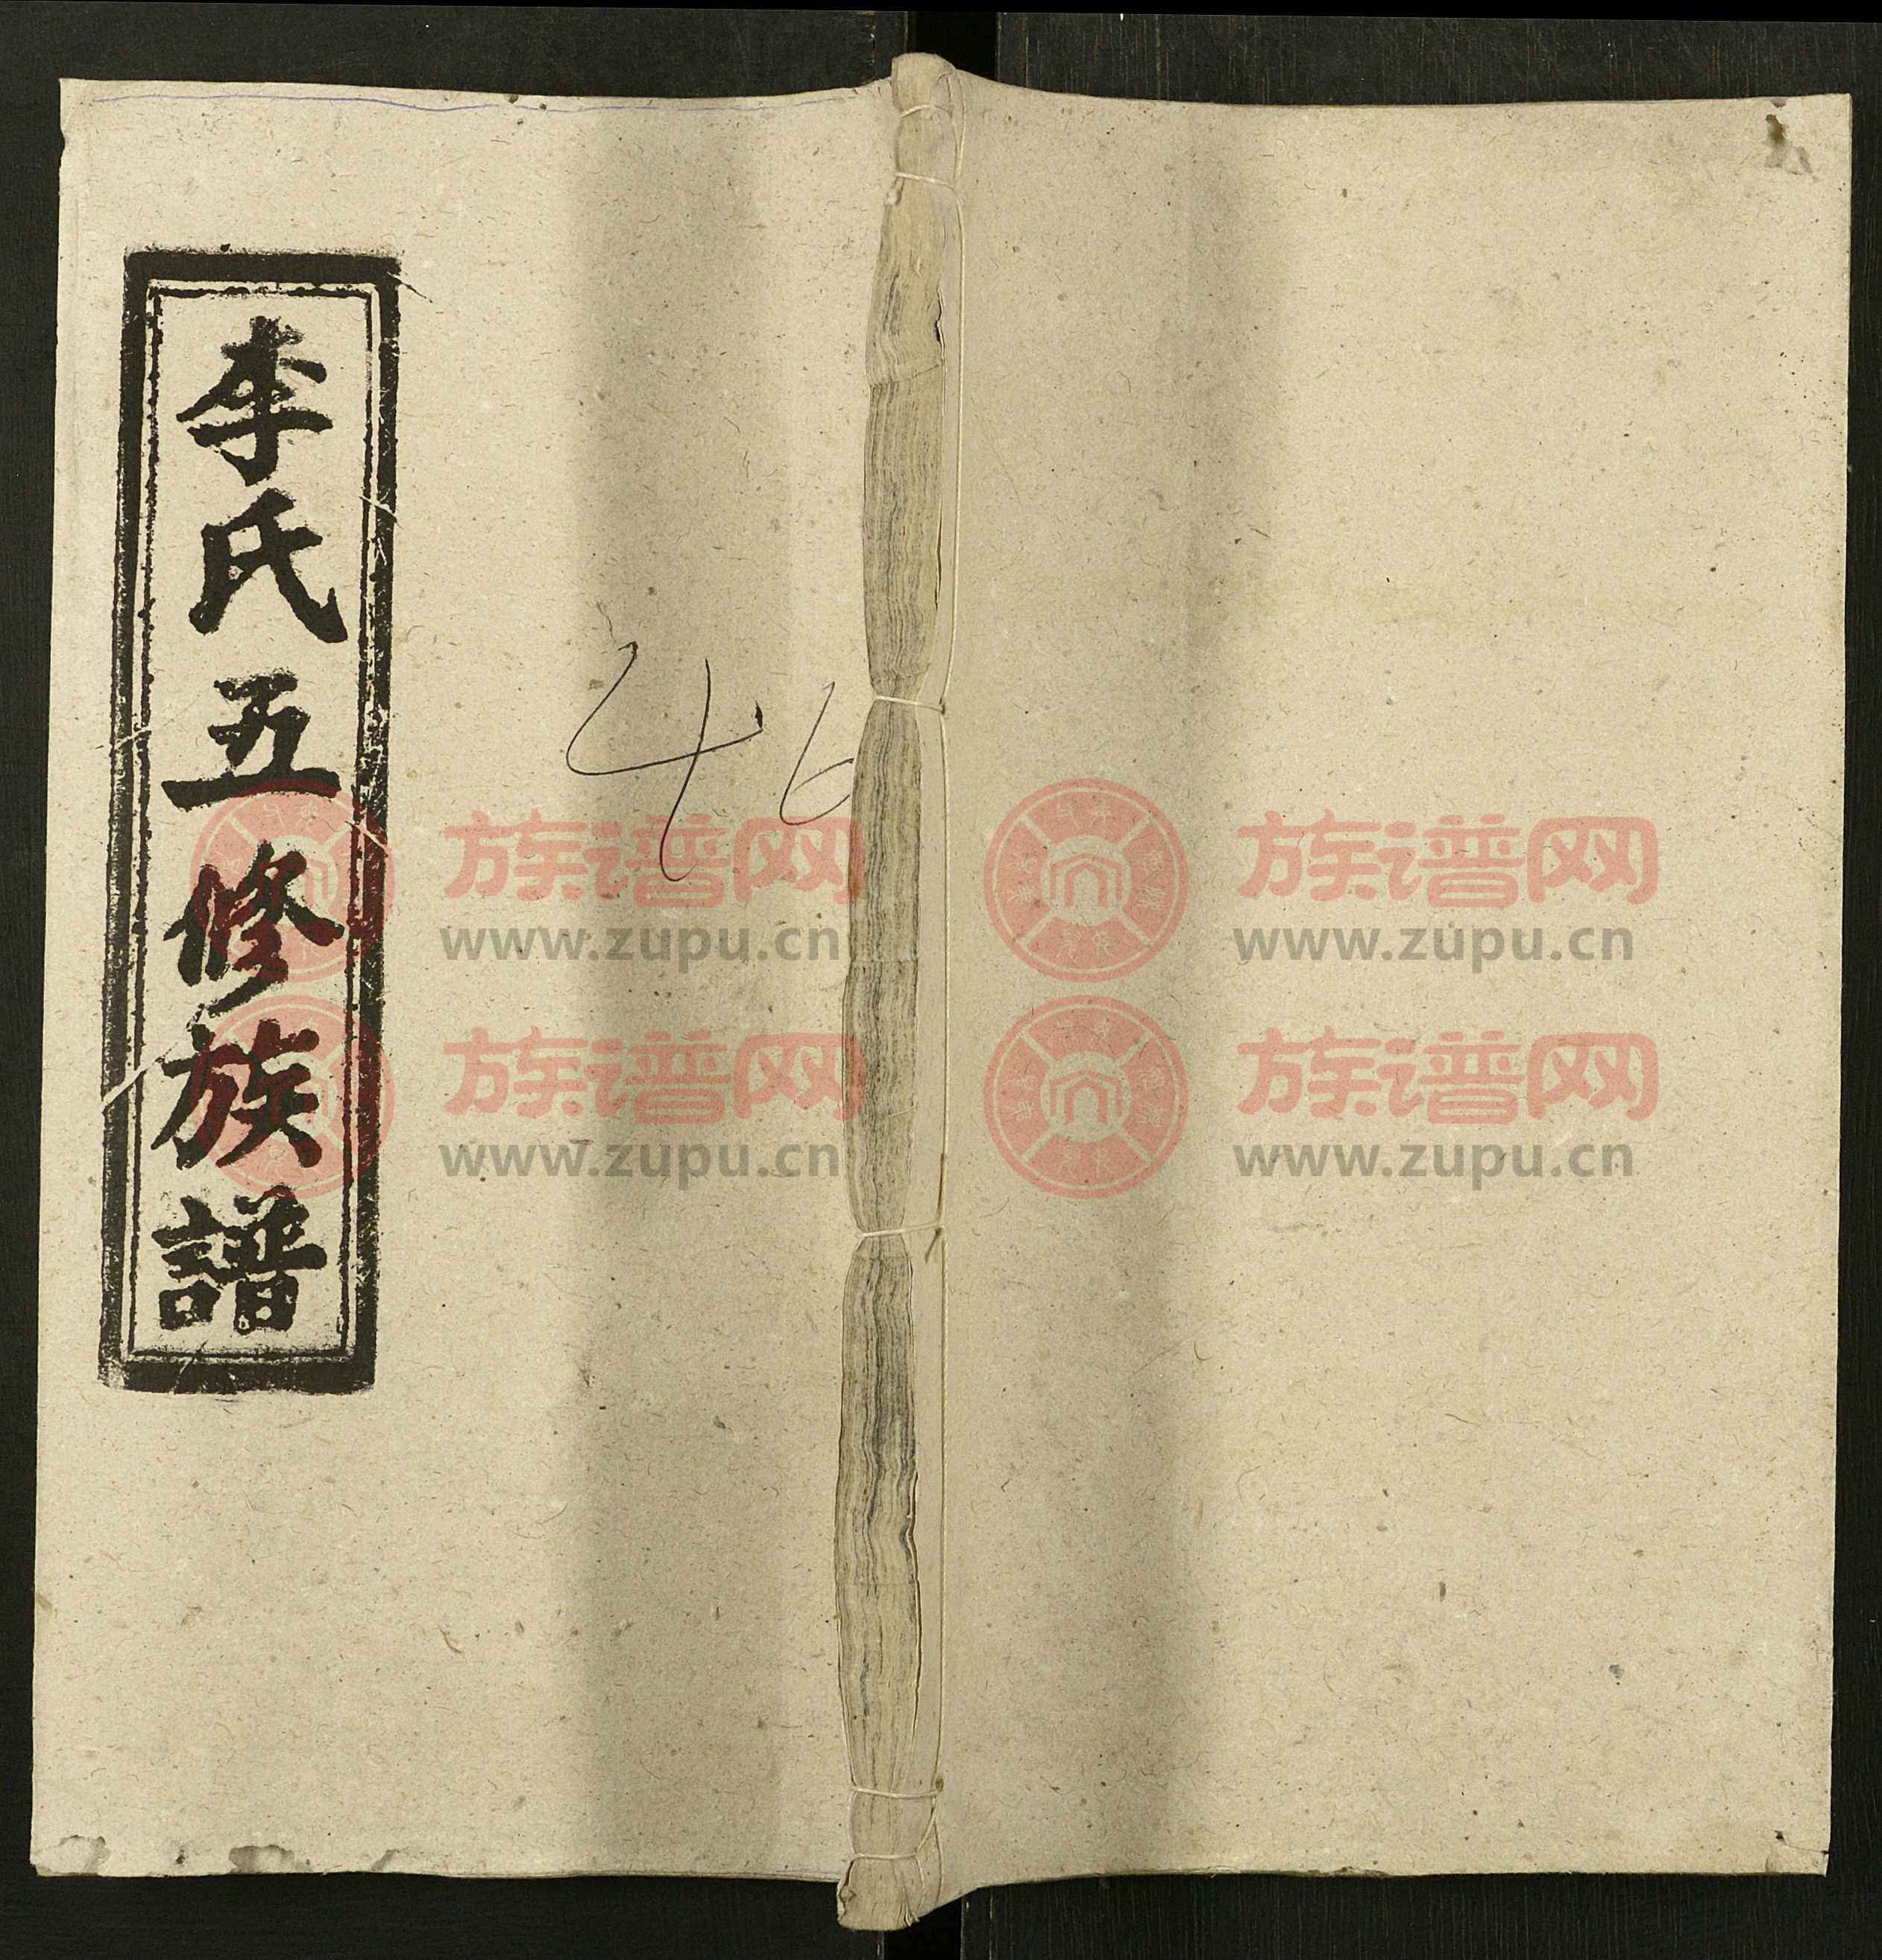 李氏五修族譜
46
族谱网
www.zupu.cn
族谱网
www.zupu.cn
族谱网
www.zupu.cn
族谱网
www.zupu.cn